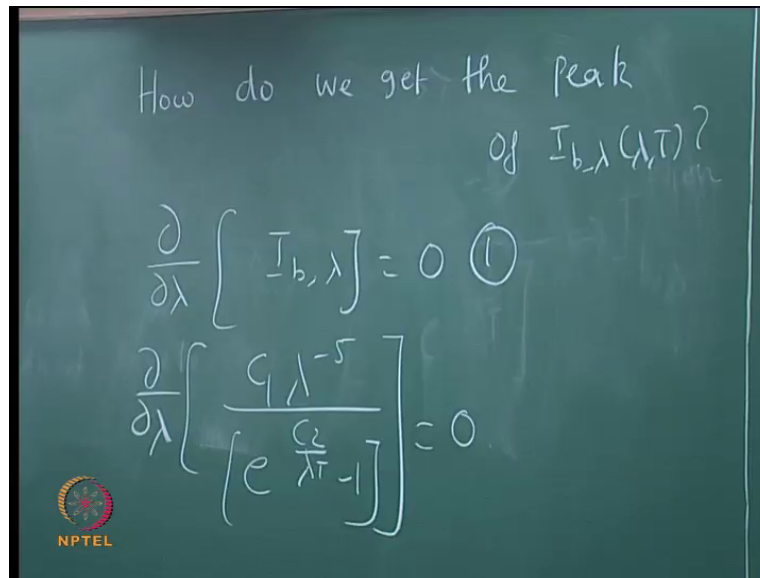 How do we get the peak
of I_{b,λ}(λ,T)?
∂/∂λ [ I_{b,λ} ] = 0 ①
∂/∂λ [ C₁ λ^{-5} / [e^{C₂/λT} - 1] ] = 0
NPTEL